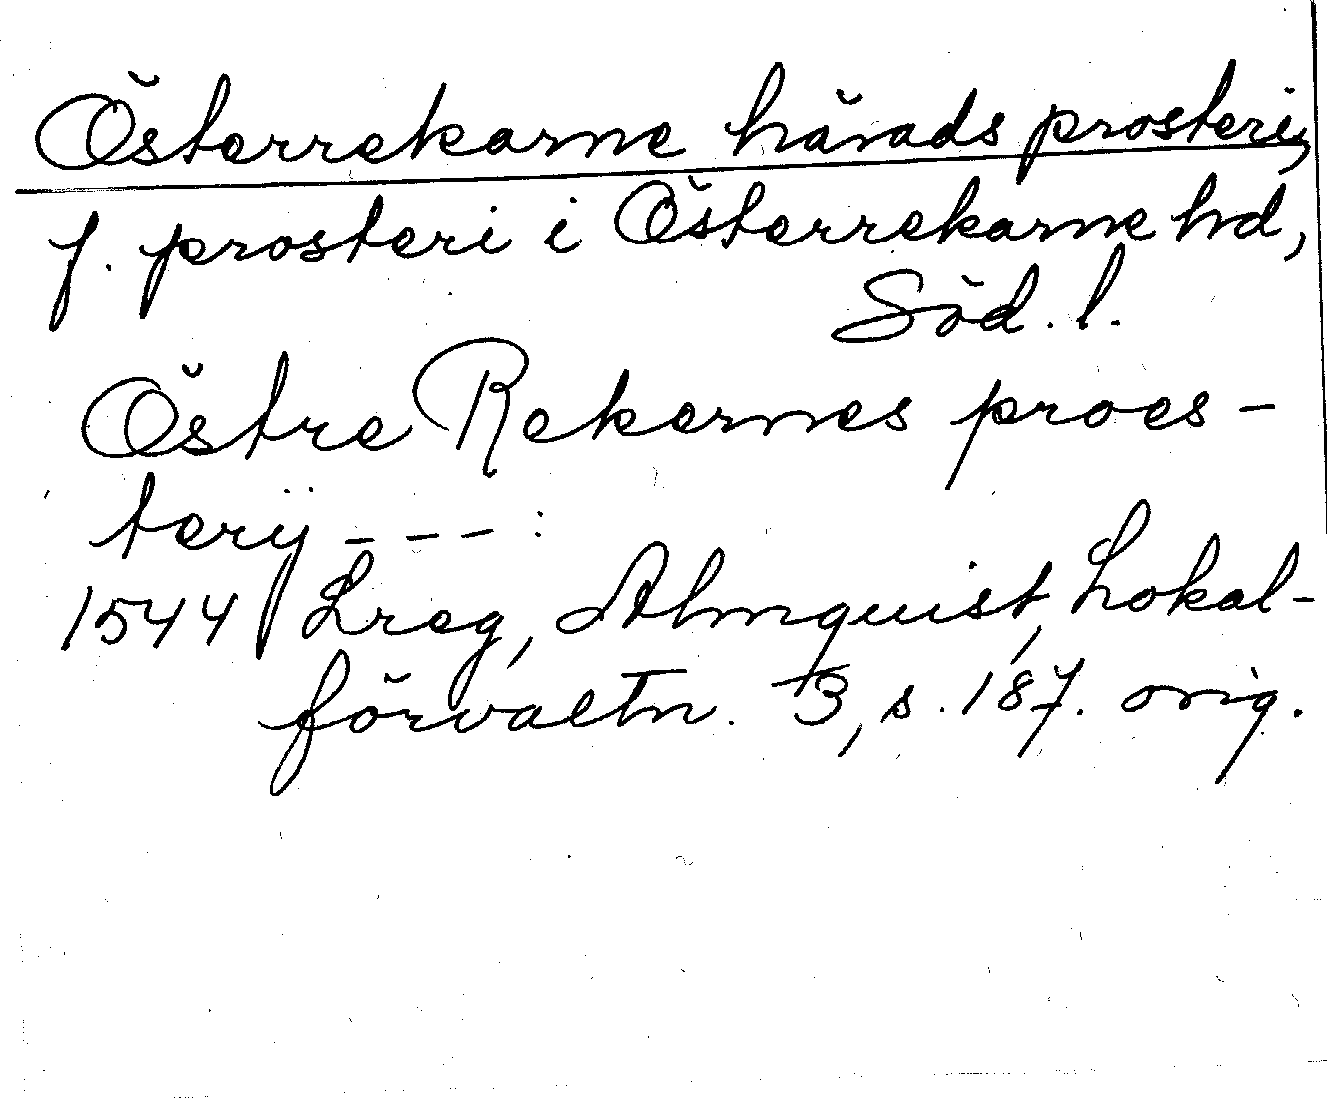 Österrekarne härads prosteri,
f. prosteri i Österrekarne hd,
Söd. l.
Östre Rekernes proes-
terÿ - - - :
1544 Lreg, Almquist, Lokal-
förvaltn. 3, s. 187. orig.